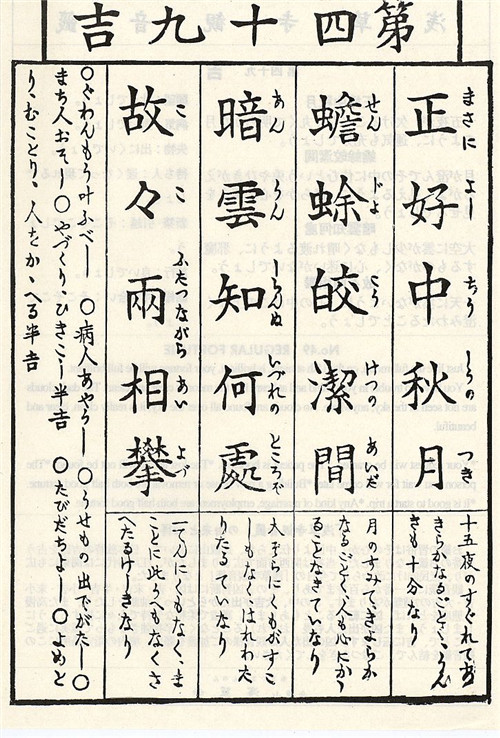 第四十九吉
正好中秋月
まさに よし ちう しうの つき
十五夜のすぐれてあ
きらかなるごとく、うん
きも十分なり
蟾蜍皎潔間
せん じよ かう けつの あいだ
月のすみて、きよらか
なるごとく人も心にかゝ
ることなきていなり
暗雲知何處
あん うん しらんぬ いづれの ところぞ
大ぞらにくもがすこ
しもなく、はれわた
りたるていなり
故々兩相攀
こ ふたつながら あい よづ
一てんにくもなく、ま
ことに此うへもなくさ
へたるけしきなり
○ぐわんもう叶ふべし ○病人あやうし ○うせもの出でがたし ○
まち人おそし ○やづくり、ひきこし半吉 ○たびだちよし ○よめと
り、むことり、人をかゝへる半吉